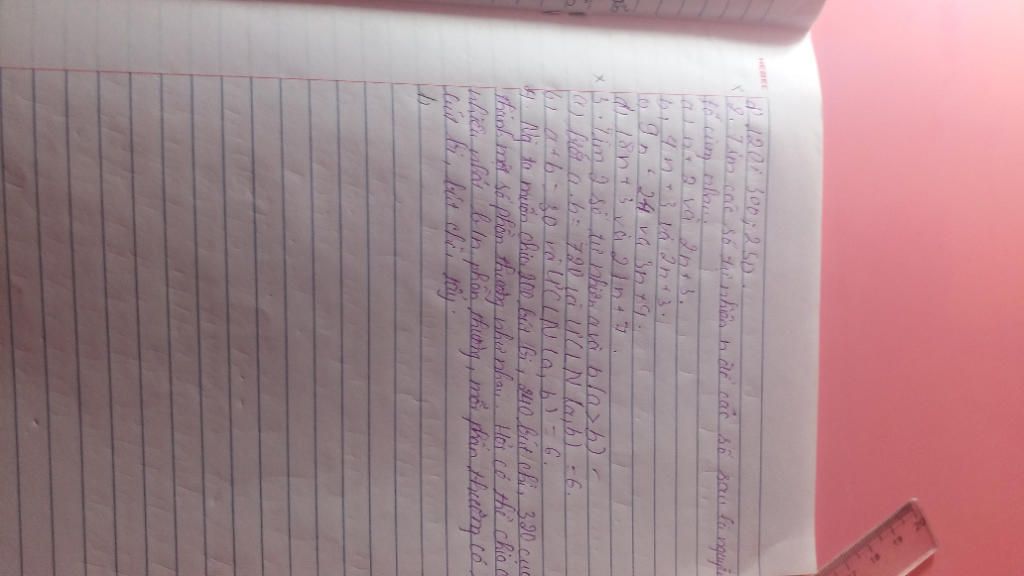 d, 120; 300; 250.
2. Tìm các số tự nhiên n để các số sau là nguyên
tố cùng nhau.
a, n + 2 và 2n + 3.
b, 4n + 3 và 2n + 3.
c, 9n + 24 và 3n + 9.
d, 18n + 3 và 21n + 7.
3. Tìm 2 số tự nhiên a và b (a > b)
a, a.b = 720 và ƯCLN (a, b) = 6.
b, a + b = 30 và ƯCLN (a, b) = 6.
4. Ng ta muốn chia 200 bút bi, 240 bút chì, 320 cục
thành một số phần thưởng như nhau. Hỏi có thể chia
nhiều nhất b/n phần thưởng, mỗi phần thưởng có
bút bi, bút chì, tẩy.